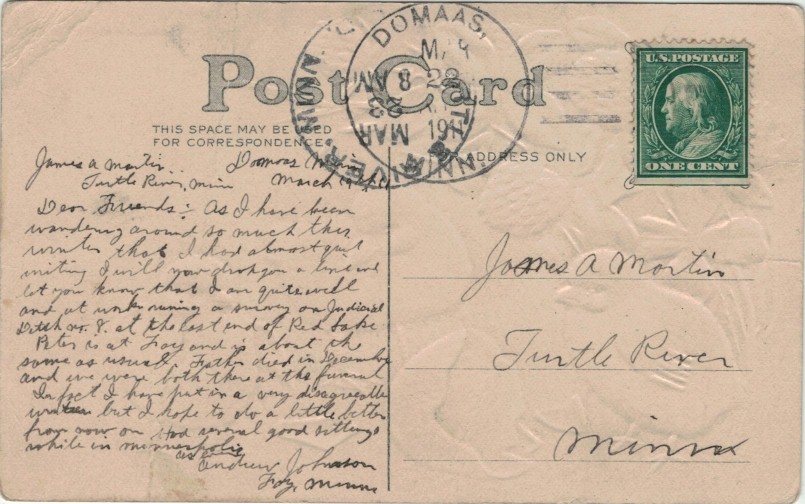 Post Card
THIS SPACE MAY BE USED
FOR CORRESPONDENCE
ADDRESS ONLY
DOMAAS,
MAR
22
1911
MAR
23
8
AM
U.S. POSTAGE
ONE CENT
James A Martin
Turtle River, Minn
Domaas Minn
March
Dear Friends: As I have been
wandering around so much this
winter that I had almost quit
writing I will now drop you a line and
let you know that I am quite well
and at work runing a survey on Judicial
Ditch no. 8. at the east end of Red Lake
Peter is at Foy and is about the
same as usual. Father died in December
and we were both there at the funeral
In fact I have put in a very disagreeable
winter but I hope to do a little better
from now on Had several good sittings
while in Minneapolis
as ever
Andrew Johnson
Foy, Minn
James A Martin
Turtle River
Minn